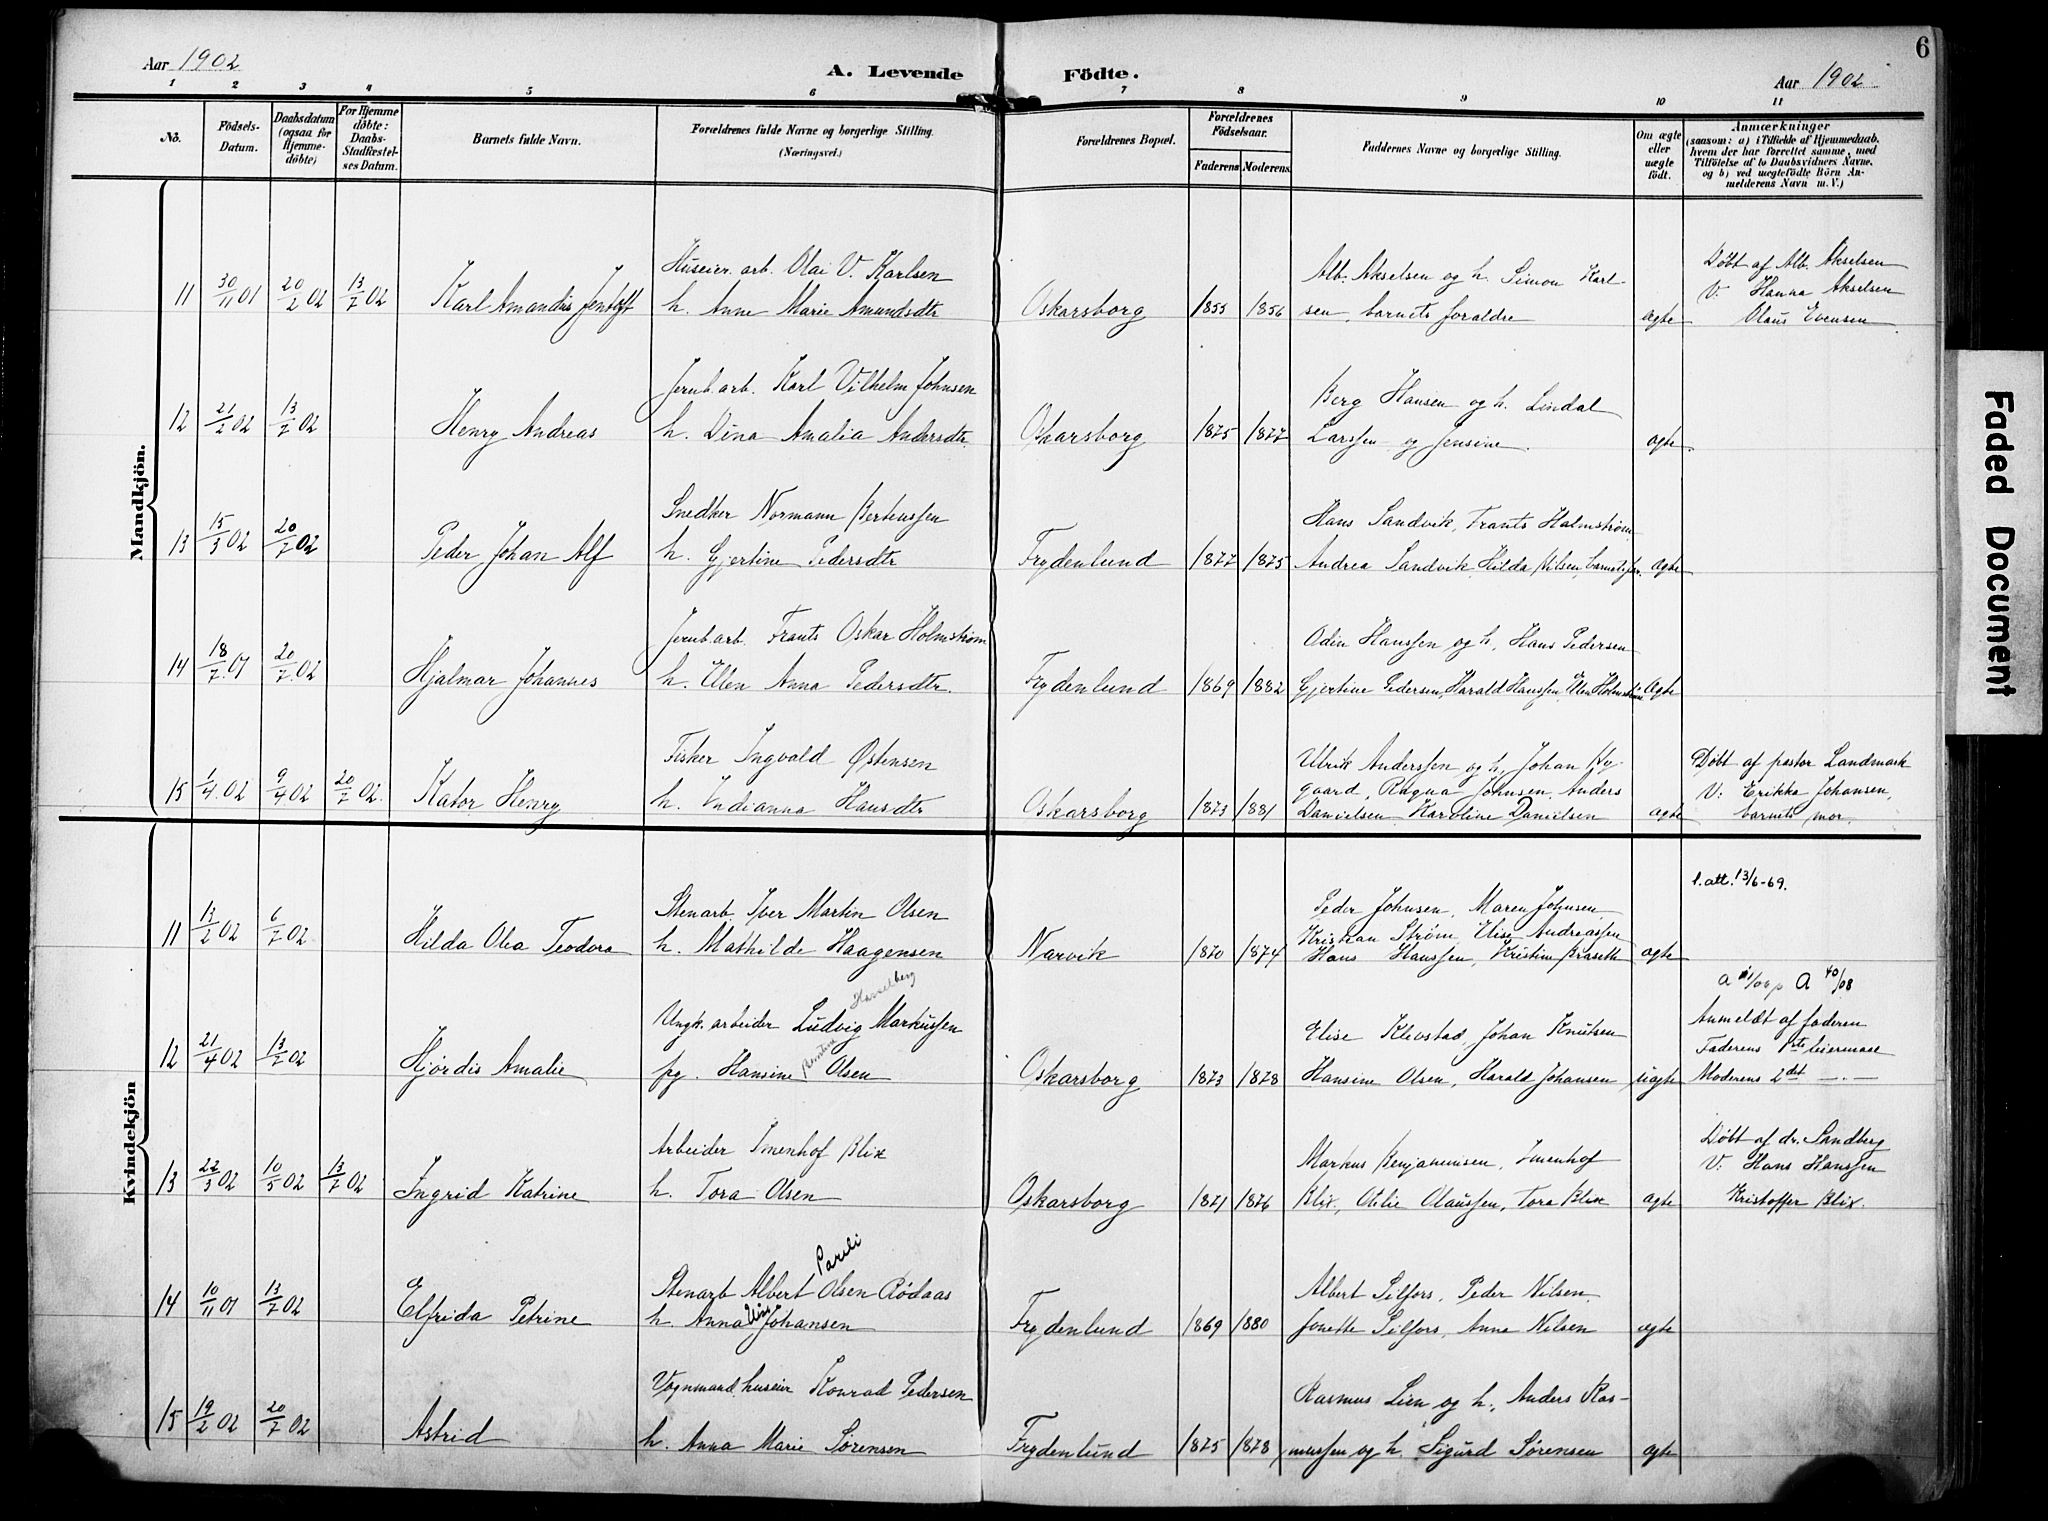 Aar 1902
A. Levende Födte.
Aar 1902
6
1 2 3 4 5 6 7 8 9 10 11
No.
Födsels-Datum.
Daabsdatum (ogsaa for Hjemme-döbte)
For Hjemme döbte: Daabs-Stadfæstelses Datum.
Barnets fulde Navn.
Forældrenes fulde Navne og borgerlige Stilling. (Næringsvei.)
Forældrenes Bopæl.
Forældrenes Födselsaar.
Faderens Moderens.
Faddernes Navne og borgerlige Stilling.
Om ægte eller uægte födt.
Anmærkninger
(saasom: a) i Tilfælde af Hjemmedaab, hvem der har forrettet samme, med Tilföielse af to Daabsvidners Navne, og b) ved uægtefödte Börn Anmelderens Navn m.V.)
Mandkjön.
11 30/11 01 20/2 02 13/7 02
Karl Amandus Jentoft
Huseier. arb. Olai V. Karlsen
h. Anne Marie Amundsdtr
Oskarsborg 1855 1856
Alb. Akselsen og h. Simon Karl-
sen, barnets forældre
ægte
Døbt af Alb. Akselsen
V. Hanna Akselsen
Olaus Evensen
12 21/2 02 13/7 02
Henry Andreas
Jernb arb. Karl Vilhelm Johnsen
h. Dina Amalia Andersdtr.
Oskarsborg 1875 1877
Berg Hansen og h. Lindal
Larssen og Jensine
ægte
13 15/3 02 20/7 02
Peder Johan Alf
Snedker Normann Bertenssen
h. Gjertine Pedersdtr
Frydenlund 1877 1875
Hans Sandvik, Frants Holmstrøm
Andrea Sandvik, Hilda Nilsen, barnets far.
ægte
14 18/7 01 20/7 02
Hjalmar Johannes
Jernb arb. Frants Oskar Holmstrøm
h. Ellen Anna Pedersdtr.
Frydenlund 1869 1882
Odin Hanssen og h, Hans Pedersen
Gjertine Pedersen, Harald Hanssen, Ellen Holmstrøm
ægte
15 1/4 02 9/4 02 20/7 02
Kator Henry
Fisker Ingvald Østensen
h. Indianna Hansdtr
Oskarsborg 1873 1881
Ulrik Anderssen og h, Johan Ny-
gaard, Ragna Johnsen, Anders
Danielsen Karoline Danielsen
ægte
Døbt af pastor Landmark
V: Erikka Johansen,
barnets mor.
Kvindekjön
11 13/2 02 6/7 02
Hilda Olea Teodora
Stenarb. Iver Martin Olsen
h. Mathilde Haagensen
Narvik 1870 1874
Peder Johnsen, Maren Johnsen
Kristian Strøm, Elise Andreassen
Hans Hanssen, Kristine Braseth
ægte
l.att. 13/6-69.
12 21/4 02 13/7 02
Hjørdis Amalie
Hasselberg
Ungk. arbeider Ludvig Markussen
pg. Hansine Berntine Olsen
Oskarsborg 1873 1878
Elise Klevstad, Johan Knutsen
Hansine Olsen, Harald Johansen
uægte
A 40/08
Anmeldt af faderen
Faderens 1ste leiermaal
Moderens 2det —.—
13 22/3 02 10/5 02 13/7 02
Ingrid Katrine
Arbeider Imenhof Blix
h. Tora Olsen
Oskarsborg 1871 1876
Markus Benjaminsen, Imenhof
Blix, Otilie Olaussen, Tora Blix
ægte
Døbt af dr. Sandberg
V: Hans Hanssen
Kristoffer Blix.
14 10/11 01 13/7 02
Elfrida Petrine
Parcli
Stenarb Albert Olsen Rödaas
h. Anna Johansen
Frydenlund 1869 1880
Albert Silfors, Peder Nilsen,
Jonette Silfors, Anne Nilsen
ægte
15 19/2 02 20/7 02
Astrid
Vognmand, huseier Konrad Pedersen
h. Anna Marie Sørensen
Frydenlund 1875 1878
Rasmus Lien og h., Anders Ras-
mussen og h. Sigurd Sørensen
ægte
Faded Document